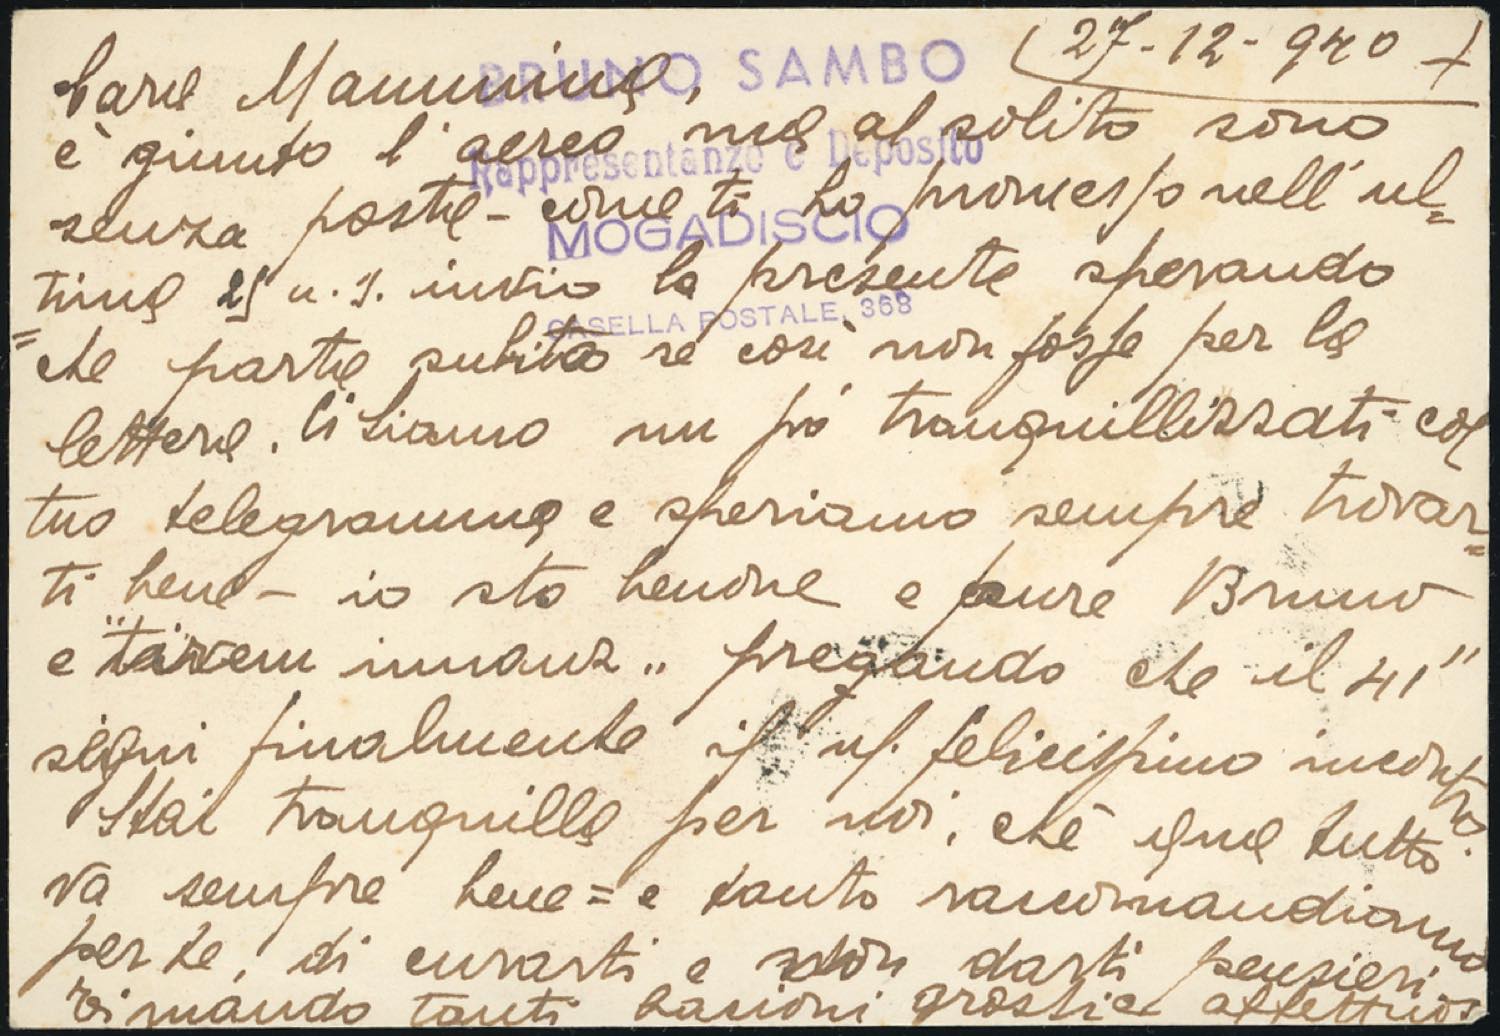 (27-12-940
BRUNO SAMBO
Rappresentanze e Deposito
MOGADISCIO
CASELLA POSTALE, 368
Cara Mammina,
è giunto l'aereo ma al solito sono
senza posta - come ti ho promesso nell'ul=
=tima 25 u.s. invio la presente sperando
che parta subito se così non fosse per la
lettera. Ci siamo un pó tranquillizzati col
tuo telegramma e speriamo sempre trovar=
ti bene - io sto benone e pure Bruno
e "tirem innanz" pregando che il 41"
segni finalmente il ns. felicissimo incontro.
Stai tranquilla per noi, chè qua tutto
va sempre bene = e tanto raccomandiamo
per te, di curarti e non darti pensieri
Ti mando tanti bacioni grossi e affettuosi